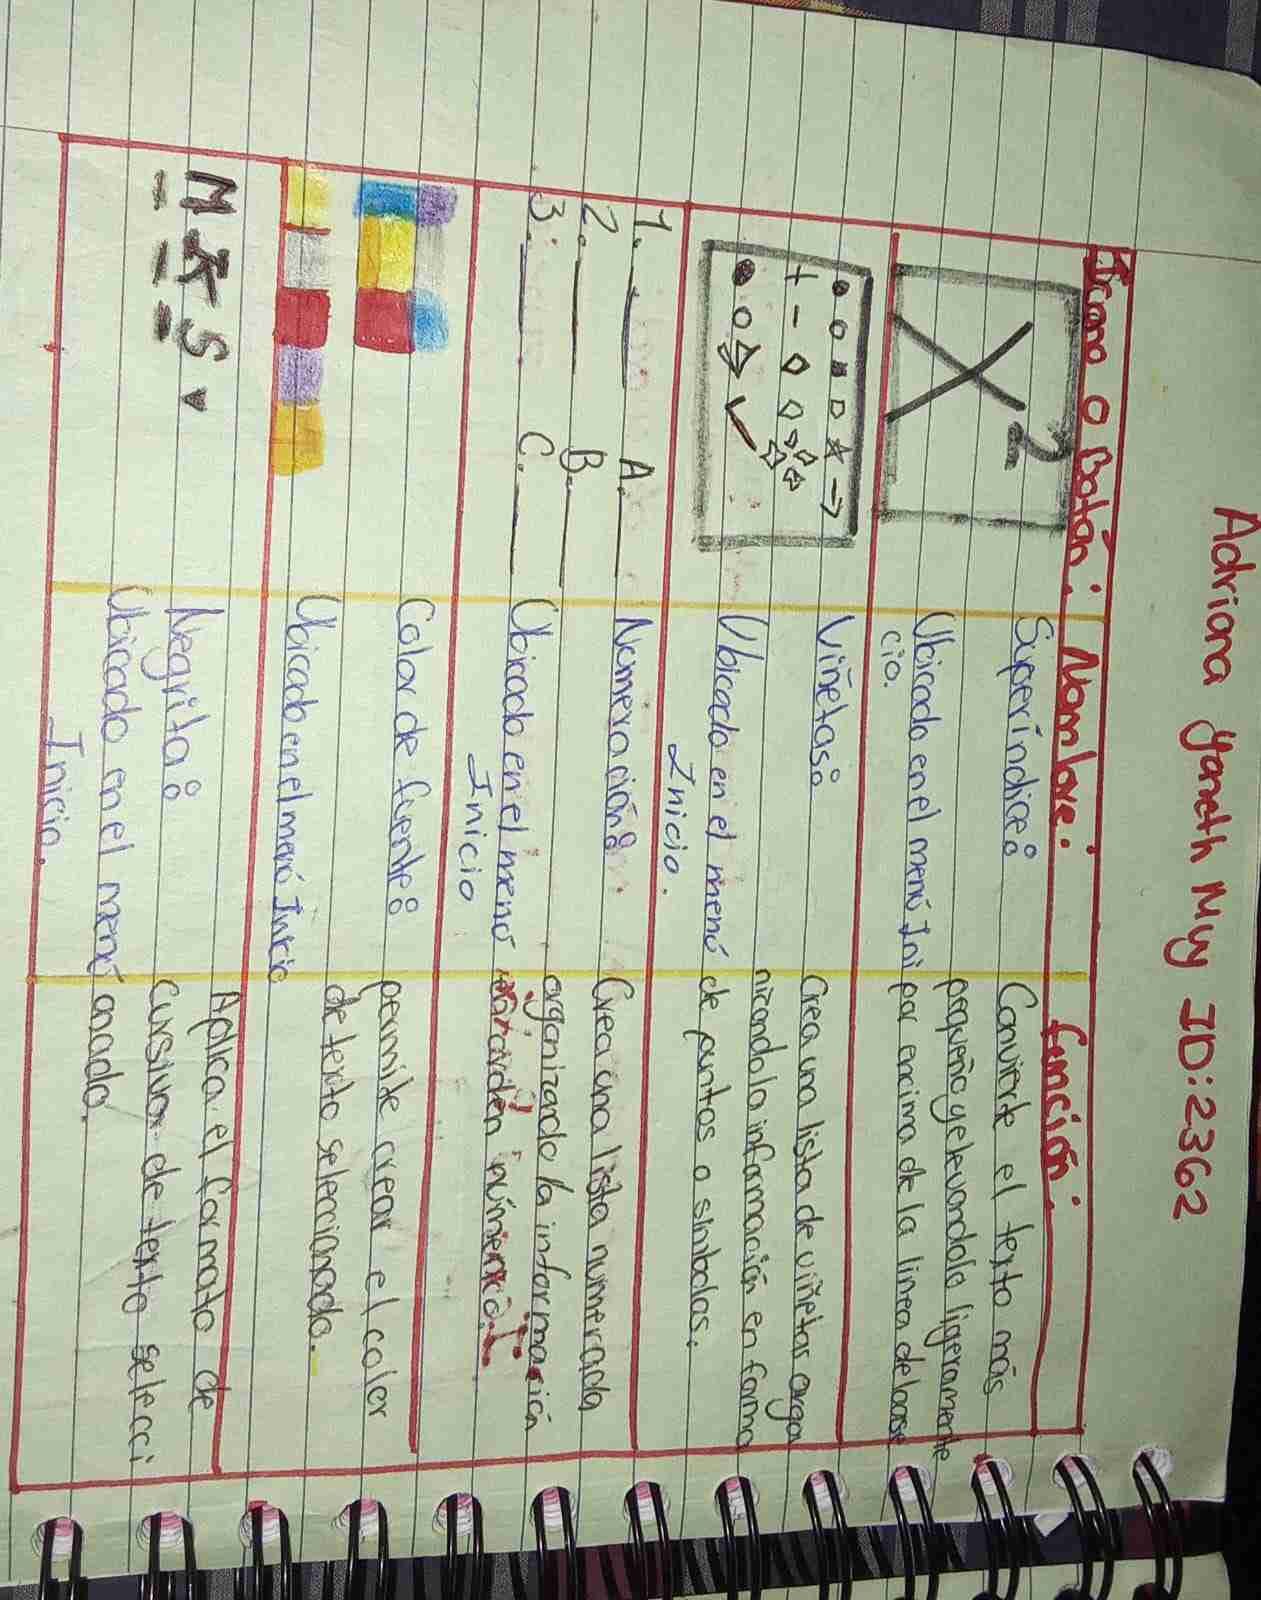 Adriana Yaneth My ID:2362
Icono o Botón: Nombre: función:
X2
Superíndice:
Ubicado en el menú Ini
cio.
Convierte el texto más
pequeño y elevandolo ligeramente
por encima de la linea de base
Viñetas:
Ubicado en el menú
Inicio.
Crea una lista de viñetas orga
nizando la información en forma
de puntos o simbolos.
1. A.
2. B.
3. C.
Numeración:
Ubicado en el menú
Inicio
Crea una lista numerada
organizado la información
por orden númerico.
Color de fuente:
Ubicado en el menú Inicio
permite crear el color
de texto seleccionado.
N K S
Negrita:
Ubicado en el menú
Inicio.
Aplica el formato de
cursiva de texto selecci
onado.